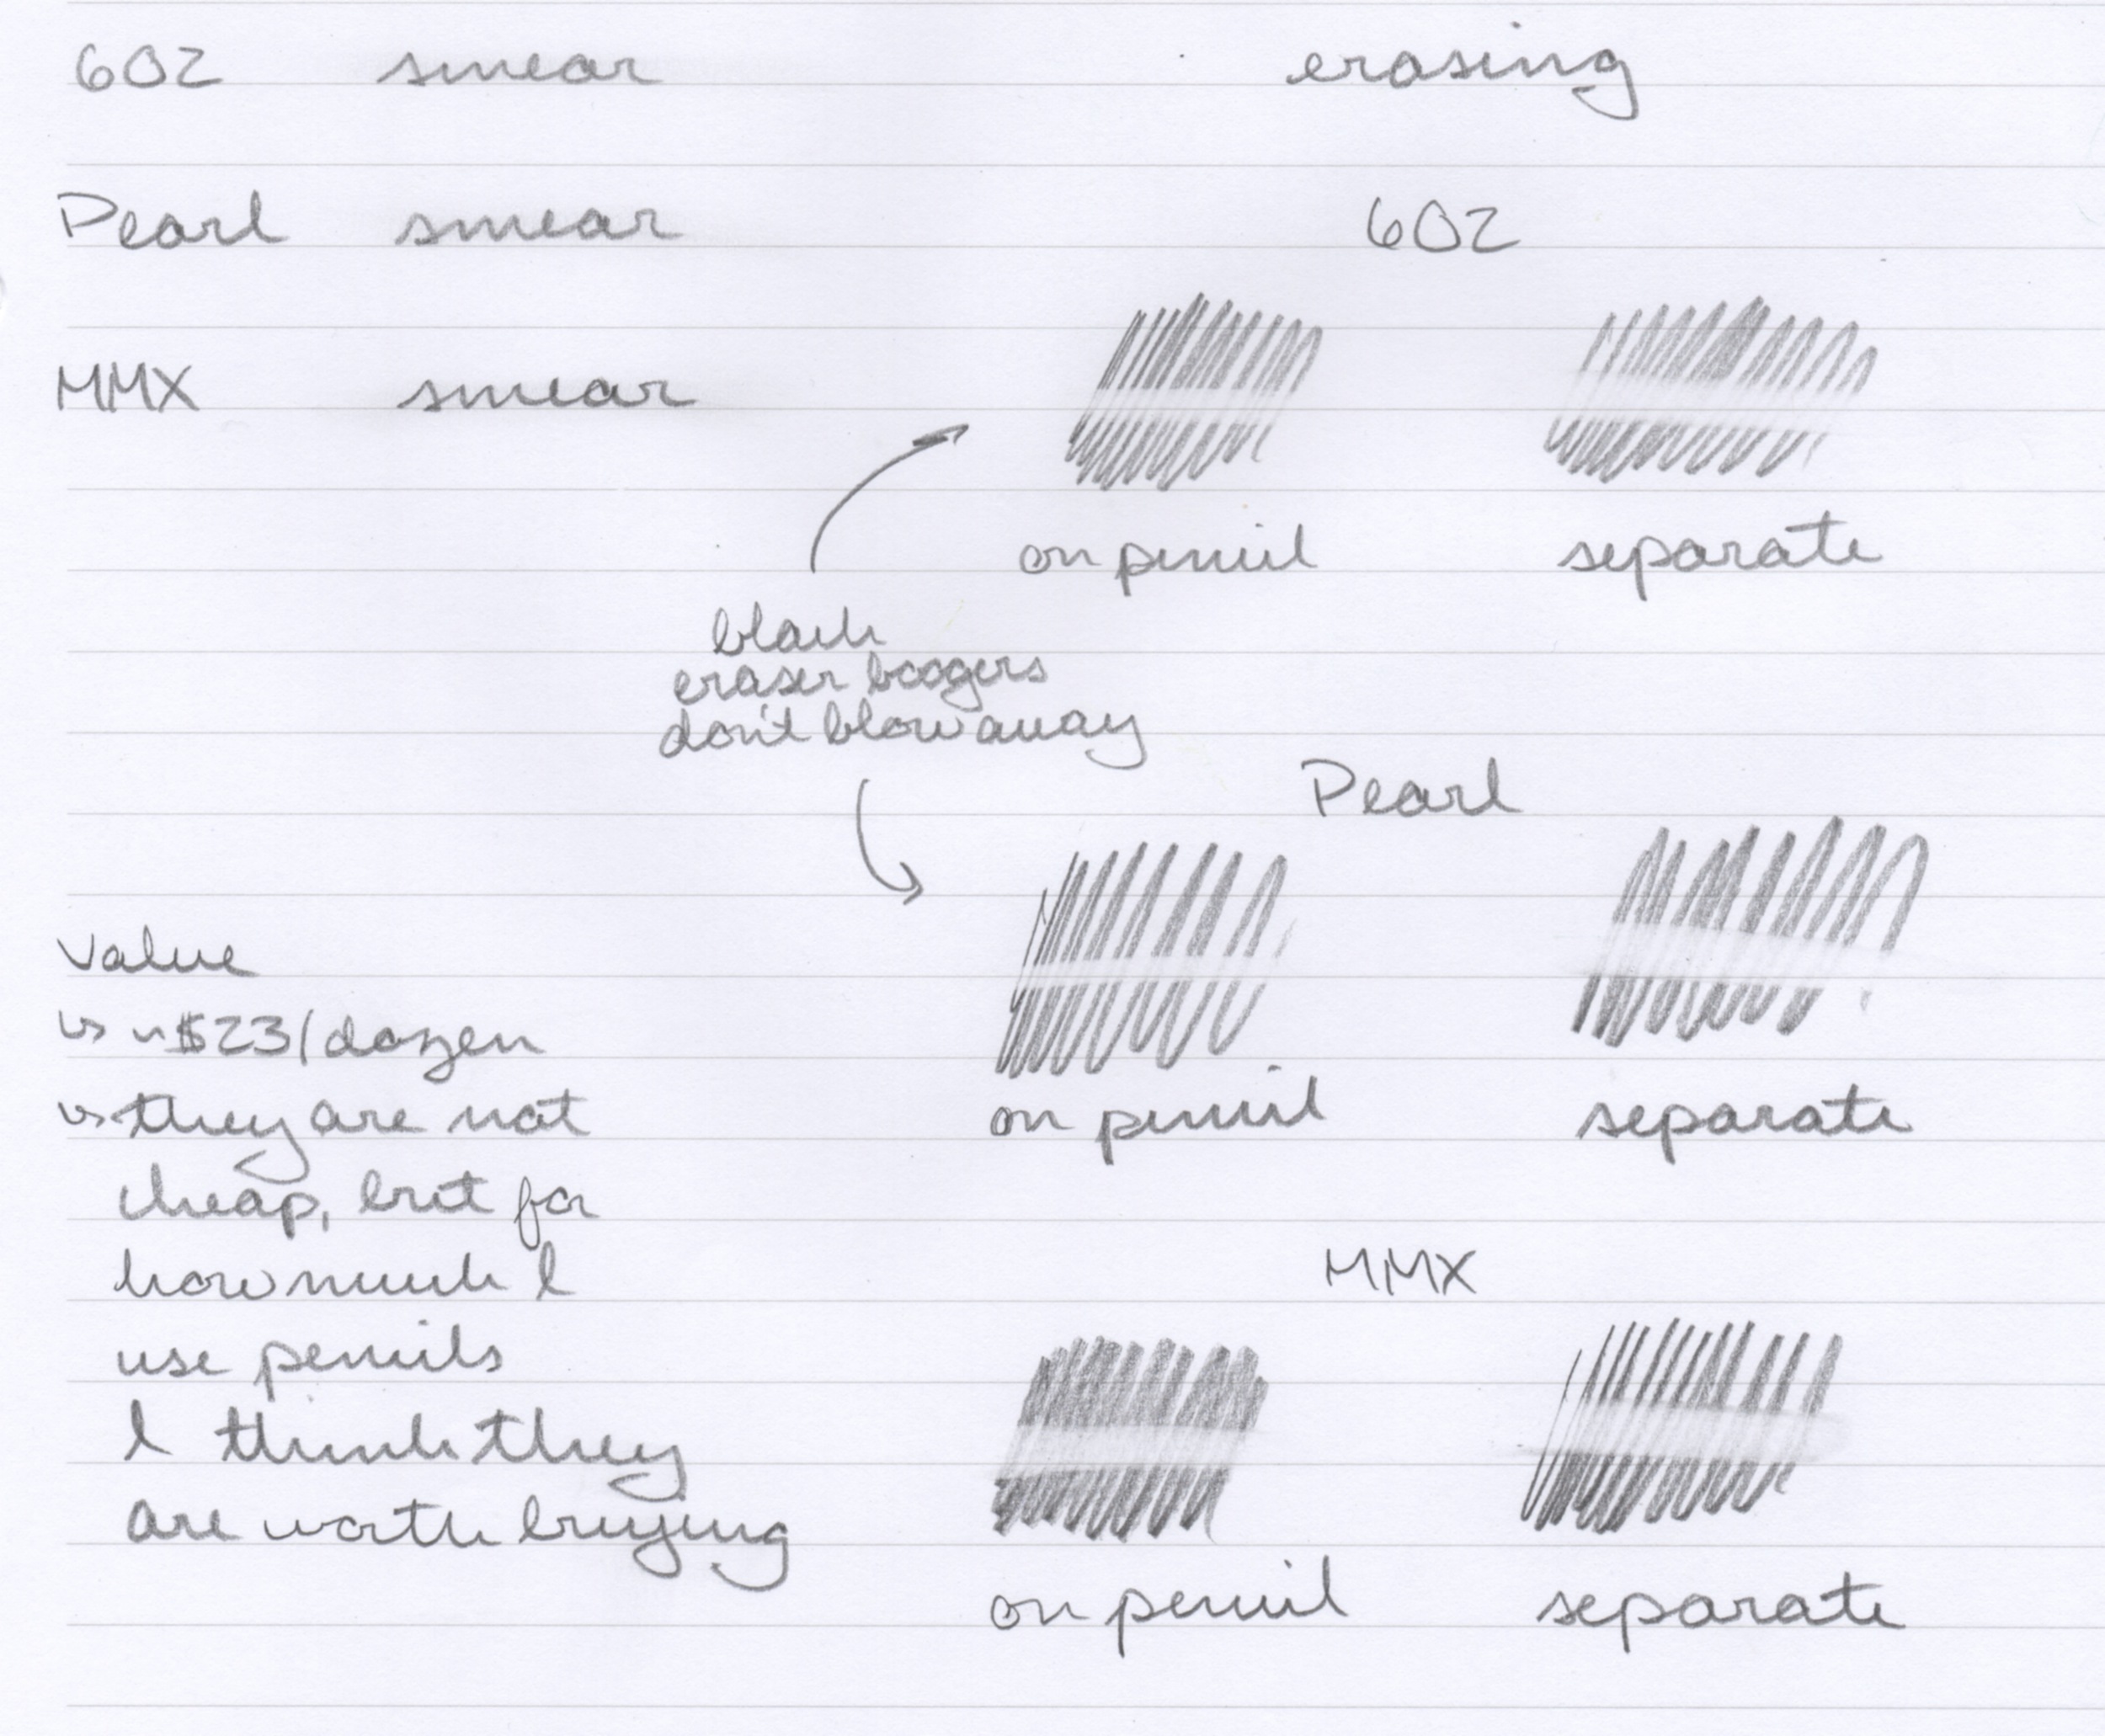 602 smear
Pearl smear
MMX smear
erasing
602
on pencil separate
black
eraser boogers
don't blow away
Pearl
on pencil separate
MMX
on pencil separate
Value
↳ ~$23/dozen
↳ they are not
cheap, but for
how much I
use pencils
I think they
are worth buying